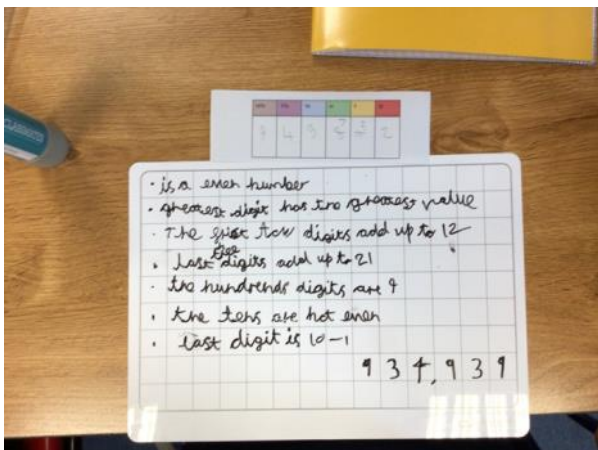 · is a even number
· greatest digit has the greatest value
· The first two digits add up to 12
three
· last digits add up to 21
· the hundrends digits are 9
· the tens are not even
· last digit is 10-1
934,939